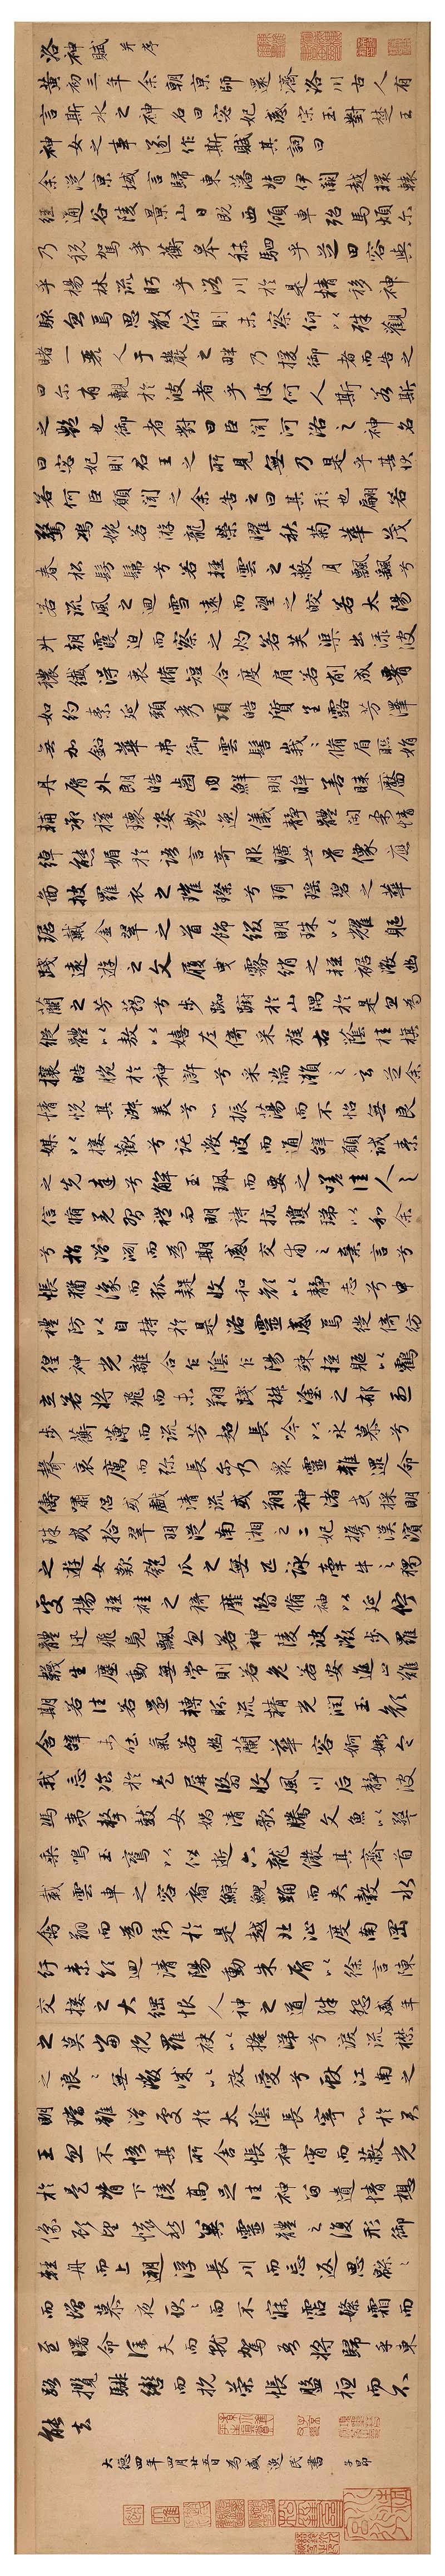 洛神賦 并序
黃初三年余朝京師還濟洛川古人有
言斯水之神名曰宓妃感宋玉對楚王
神女之事遂作斯賦其詞曰
余從京域言歸東藩背伊闕越轘轅
經通谷陵景山日既西傾車殆馬煩尔
乃稅駕乎蘅皋秣駟乎芝田容與
乎楊林流眄乎洛川於是精移神
駭忽焉思散俯則未察仰以殊觀
睹一麗人于巖之畔乃援御者而告之
曰尔有覿於彼者乎彼何人斯若斯
之艷也御者對曰臣聞河洛之神名
曰宓妃則君王之所見無乃是乎其狀
若何臣願聞之余告之曰其形也翩若
驚鴻婉若游龍榮曜秋菊華茂
春松髣髴兮若輕雲之蔽月飄颻兮
若流風之迴雪遠而望之皎若太陽
升朝霞迫而察之灼若芙蕖出淥波
穠纖得衷脩短合度肩若削成腰
如約素延頸秀項皓質呈露芳澤
無加鉛華弗御雲髻峩峩脩眉聯娟
丹脣外朗皓齒內鮮明眸善睞靨
輔承權瓌姿艷逸儀靜體閑柔情
綽態媚於語言奇服曠世骨像應
圖披羅衣之璀璨兮珥瑤碧之華
琚戴金翠之首飾綴明珠以耀軀
踐遠遊之文履曳霧綃之輕裾微幽
蘭之芳藹兮步踟躕於山隅於是忽焉
縱體以敖以嬉左倚采旄右蔭桂旗
攘皓腕於神滸兮采湍瀨之玄芝余
情悅其淑美兮心振蕩而不怡無良
媒以接歡兮託微波而通辭願誠素
之先達兮解玉珮而要之嗟佳人之
信脩羌習禮而明詩抗瓊珶以和余
兮指潛淵而為期感交甫之棄言兮
悵猶豫而狐疑收和顏以靜志兮申
禮防以自持於是洛靈感焉徙倚彷
徨神光離合乍陰乍陽竦輕軀以鶴
立若將飛而未翔踐椒塗之郁烈
步蘅薄而流芳超長吟以永慕兮
聲哀厲而弥長尔乃眾靈雜遝命
儔嘯侶或戲清流或翔神渚或採明
珠或拾翠羽從南湘之二妃攜漢濱
之遊女歎匏瓜之無匹詠牽牛之獨
處揚輕袿之猗靡翳脩袖以延佇
體迅飛鳧飄忽若神陵波微步羅
襪生塵動無常則若危若安進止難
期若往若還轉眄流精光潤玉顏
含辭未吐氣若幽蘭華容婀娜令
我忘飡於是屏翳收風川后靜波
馮夷擊鼓女媧清歌騰文魚以警
乘鳴玉鸞以偕逝六龍儼其齊首
載雲車之容裔鯨鯢踊而夾轂水
禽翔而為衛於是越北沚度南岡
紆素領迴清陽動朱脣以徐言陳
交接之大綱恨人神之道殊怨盛年
之莫當抗羅袂以掩涕兮淚流襟
之浪浪無微情以效愛兮獻江南之
明璫雖潛處於太陰長寄心於君
王忽不悟其所舍悵神宵而蔽光
於是背下陵高足往神留遺情想
像顧望懷愁冀靈體之復形御
輕舟而上遡浮長川而忘返思緜緜
而增慕夜耿耿而不寐霑繁霜而
至曙命僕夫而就駕吾將歸乎東
路攬騑轡而抗策悵盤桓而不
能去
大德四年四月廿五日為盛逸民書 子昂